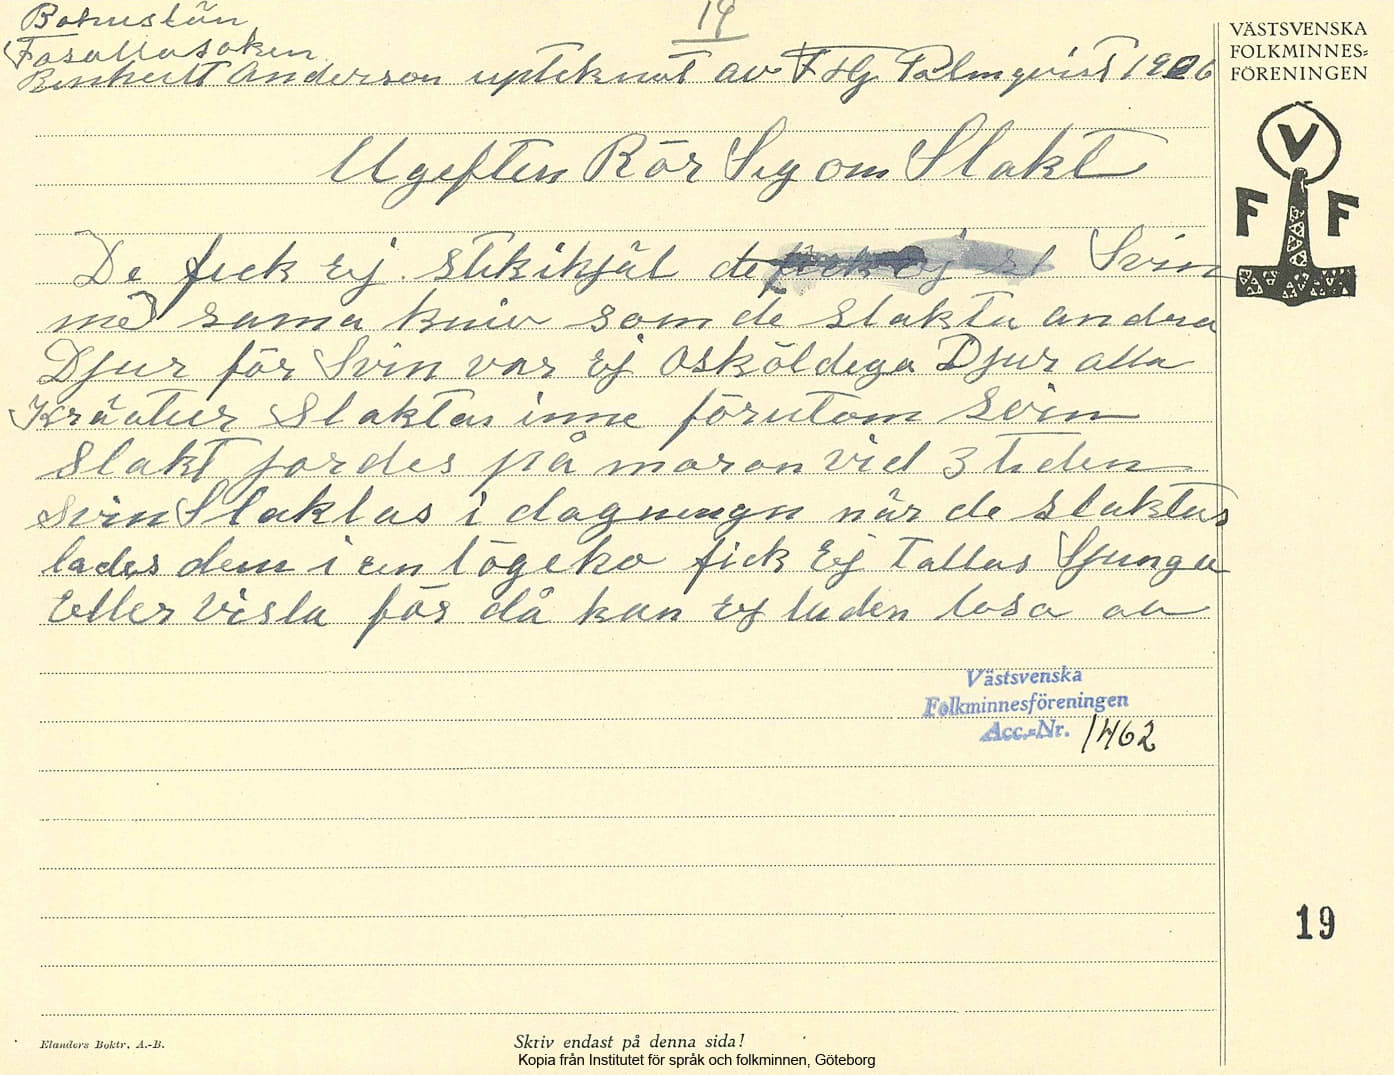 14
Bohuslän
Forsällasoken
Benhertt Anderson upteknat av F Hg Palmqvist 1926
VÄSTSVENSKA
FOLKMINNES-
FÖRENINGEN
V
F F
Ugeften Rör Sig om Slakt
De fick Ej stikihjäl de Svin
med sama kniv som de slakta andra
Djur för Svin var Ej Osköldiga Djur alla
Kräatur Slaktas inne förutom svin
Slakt jordes på moron vid 3 tiden
Svin Slaktas i dagningn när de slaktas
lades dem i en lögeko fick Ej Tallas Sjunga
Eller Visla för då kan Ej luden losa av
Västsvenska
Folkminnesföreningen
Acc.-Nr. 1462
19
Elanders Boktr. A.-B.
Skriv endast på denna sida!
Kopia från Institutet för språk och folkminnen, Göteborg